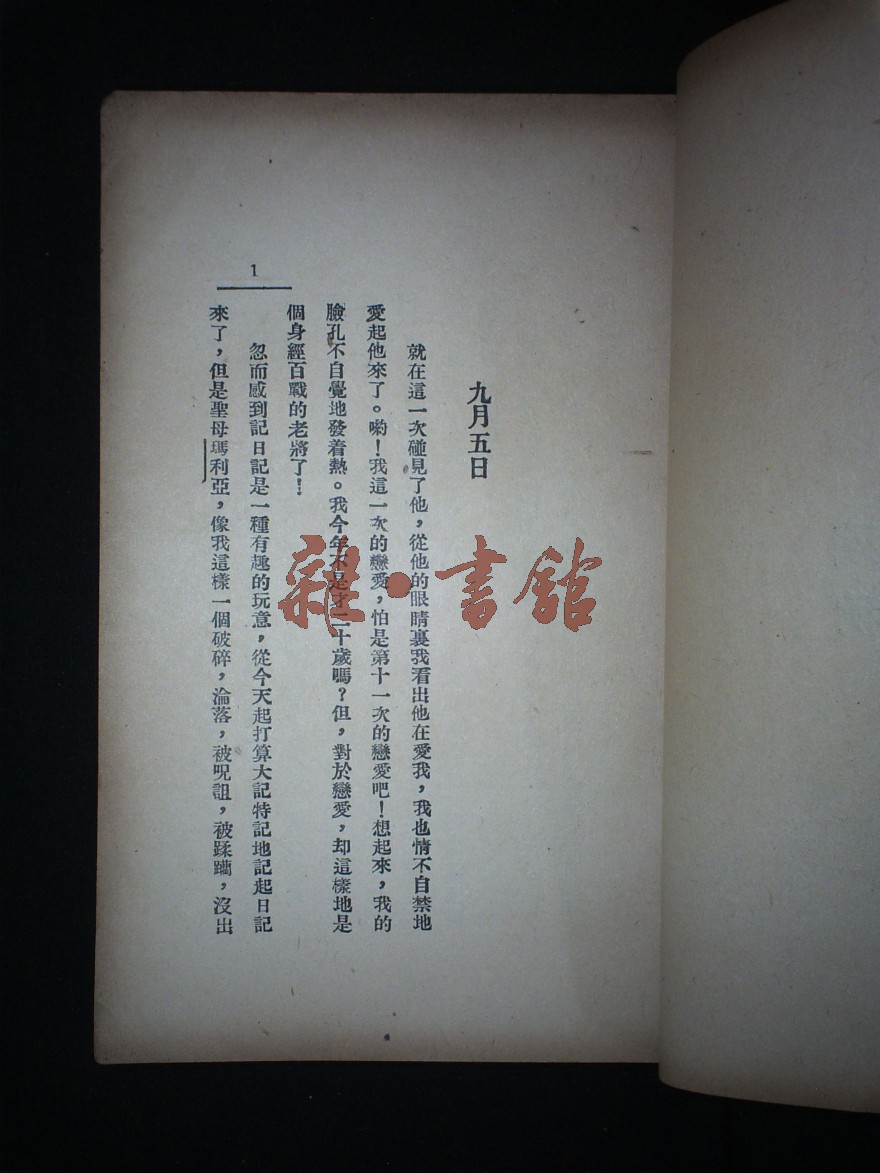 九月五日
就在這一次碰見了他，從他的眼睛裏我看出他在愛我，我也情不自禁地
愛起他來了。喲！我這一次的戀愛，怕是第十一次的戀愛吧！想起來，我的
臉孔不自覺地發着熱。我今年不是才二十歲嗎？但，對於戀愛，却這樣地是
個身經百戰的老將了！
忽而感到記日記是一種有趣的玩意，從今天起打算大記特記地記起日記
來了，但是聖母瑪利亞，像我這樣一個破碎，淪落，被呪詛，被蹂躪，沒出
1
雜·書館